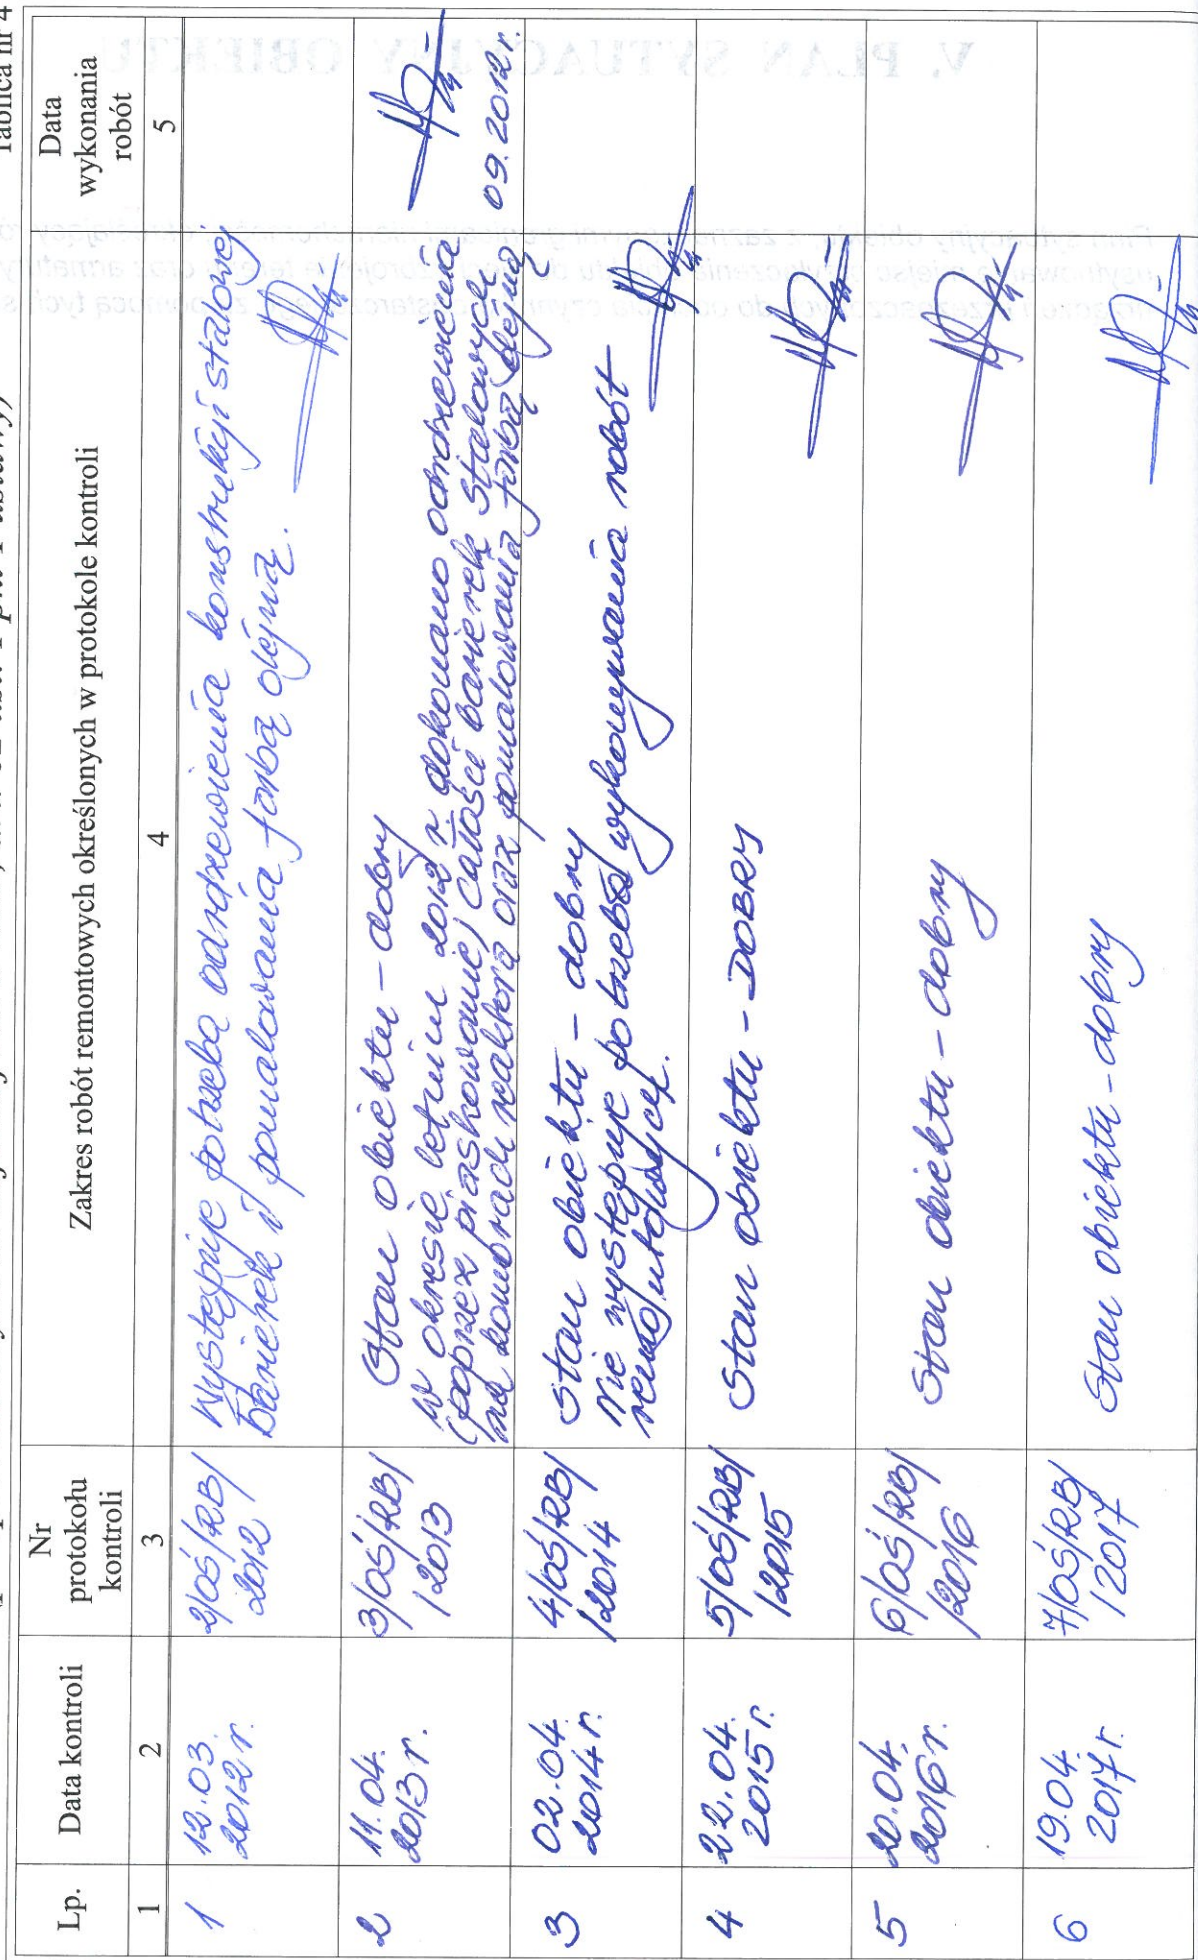 Tablica nr 4
Lp.
Data kontroli
Nr
protokołu
kontroli
Zakres robót remontowych określonych w protokole kontroli
Data
wykonania
robót
1
2
3
4
5
1
12.03.
2012 r.
2/OŚ/RB/
2012
Występuje potrzeba odrdzewienia konstrukcji stalowej
barierek i pomalowania farbą olejną.
2
11.04.
2013 r.
3/OŚ/RB/
/2013
Stan obiektu - dobry
w okresie letnim 2012 r dokonano odrdzewienia
(poprzez piaskowanie) całości barierek stalowych
na komorach reaktora oraz pomalowania farbą olejną
09.2012 r.
3
02.04.
2014 r.
4/OŚ/RB/
/2014
Stan obiektu - dobry
Nie występuje potrzeba wykonywania robót
remontowych.
4
22.04.
2015 r.
5/OŚ/RB/
/2015
Stan obiektu - DOBRY
5
20.04.
2016 r.
6/OŚ/RB/
/2016
Stan obiektu - dobry
6
19.04.
2017 r.
7/OŚ/RB/
/2017
Stan obiektu - dobry